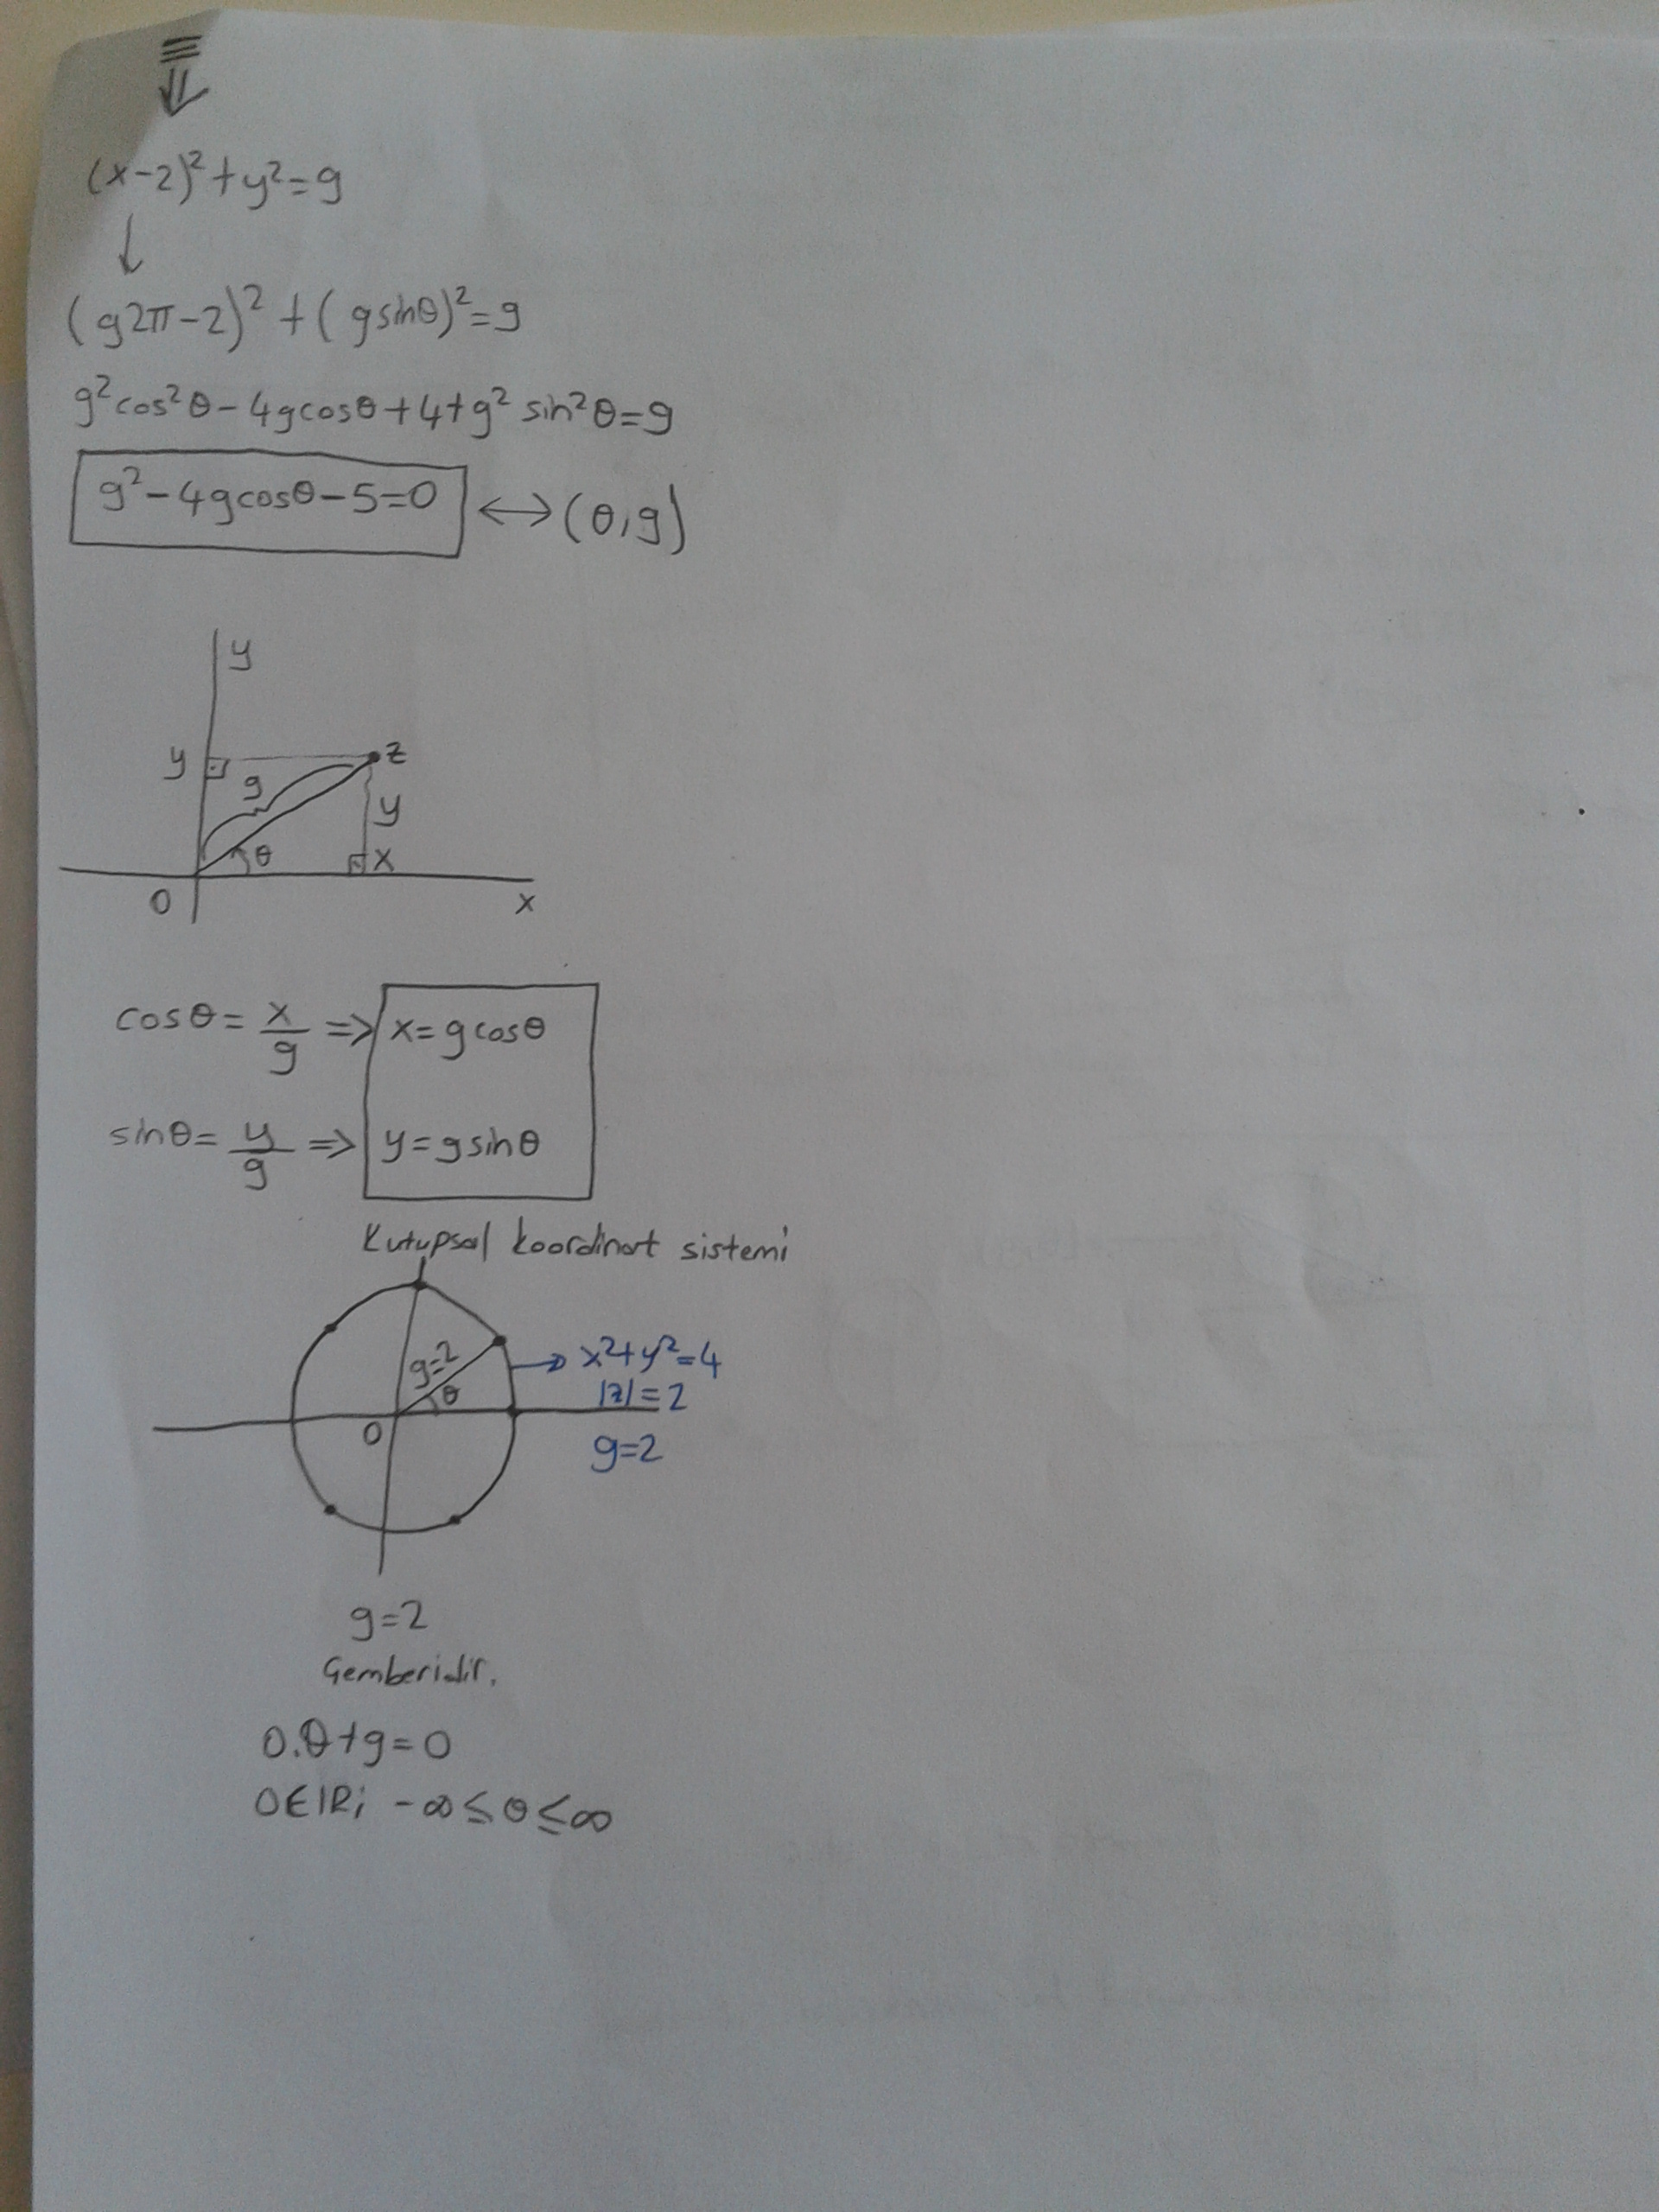 ≡
⇓
(x-2)²+y²=9
↓
(g2π-2)²+(gsinθ)²=9
g²cos²θ-4gcosθ+4+g² sin²θ=9
g²-4gcosθ-5=0 ↔ (θ,g)
y
y z
g
y
θ x
0 x
cosθ= x/g => x=gcosθ
sinθ= y/g => y=gsinθ
Kutupsal koordinat sistemi
g=2 → x²+y²=4
θ |z|=2
0 g=2
g=2
Çemberidir.
0.θ+g=0
θ∈IR; -∞≤θ≤∞